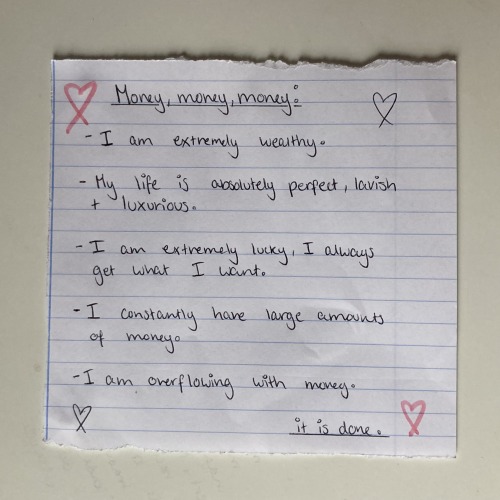 Money, money, money:
- I am extremely wealthy.
- My life is absolutely perfect, lavish
+ luxurious.
- I am extremely lucky, I always
get what I want.
- I constantly have large amounts
of money.
- I am overflowing with money.
it is done.